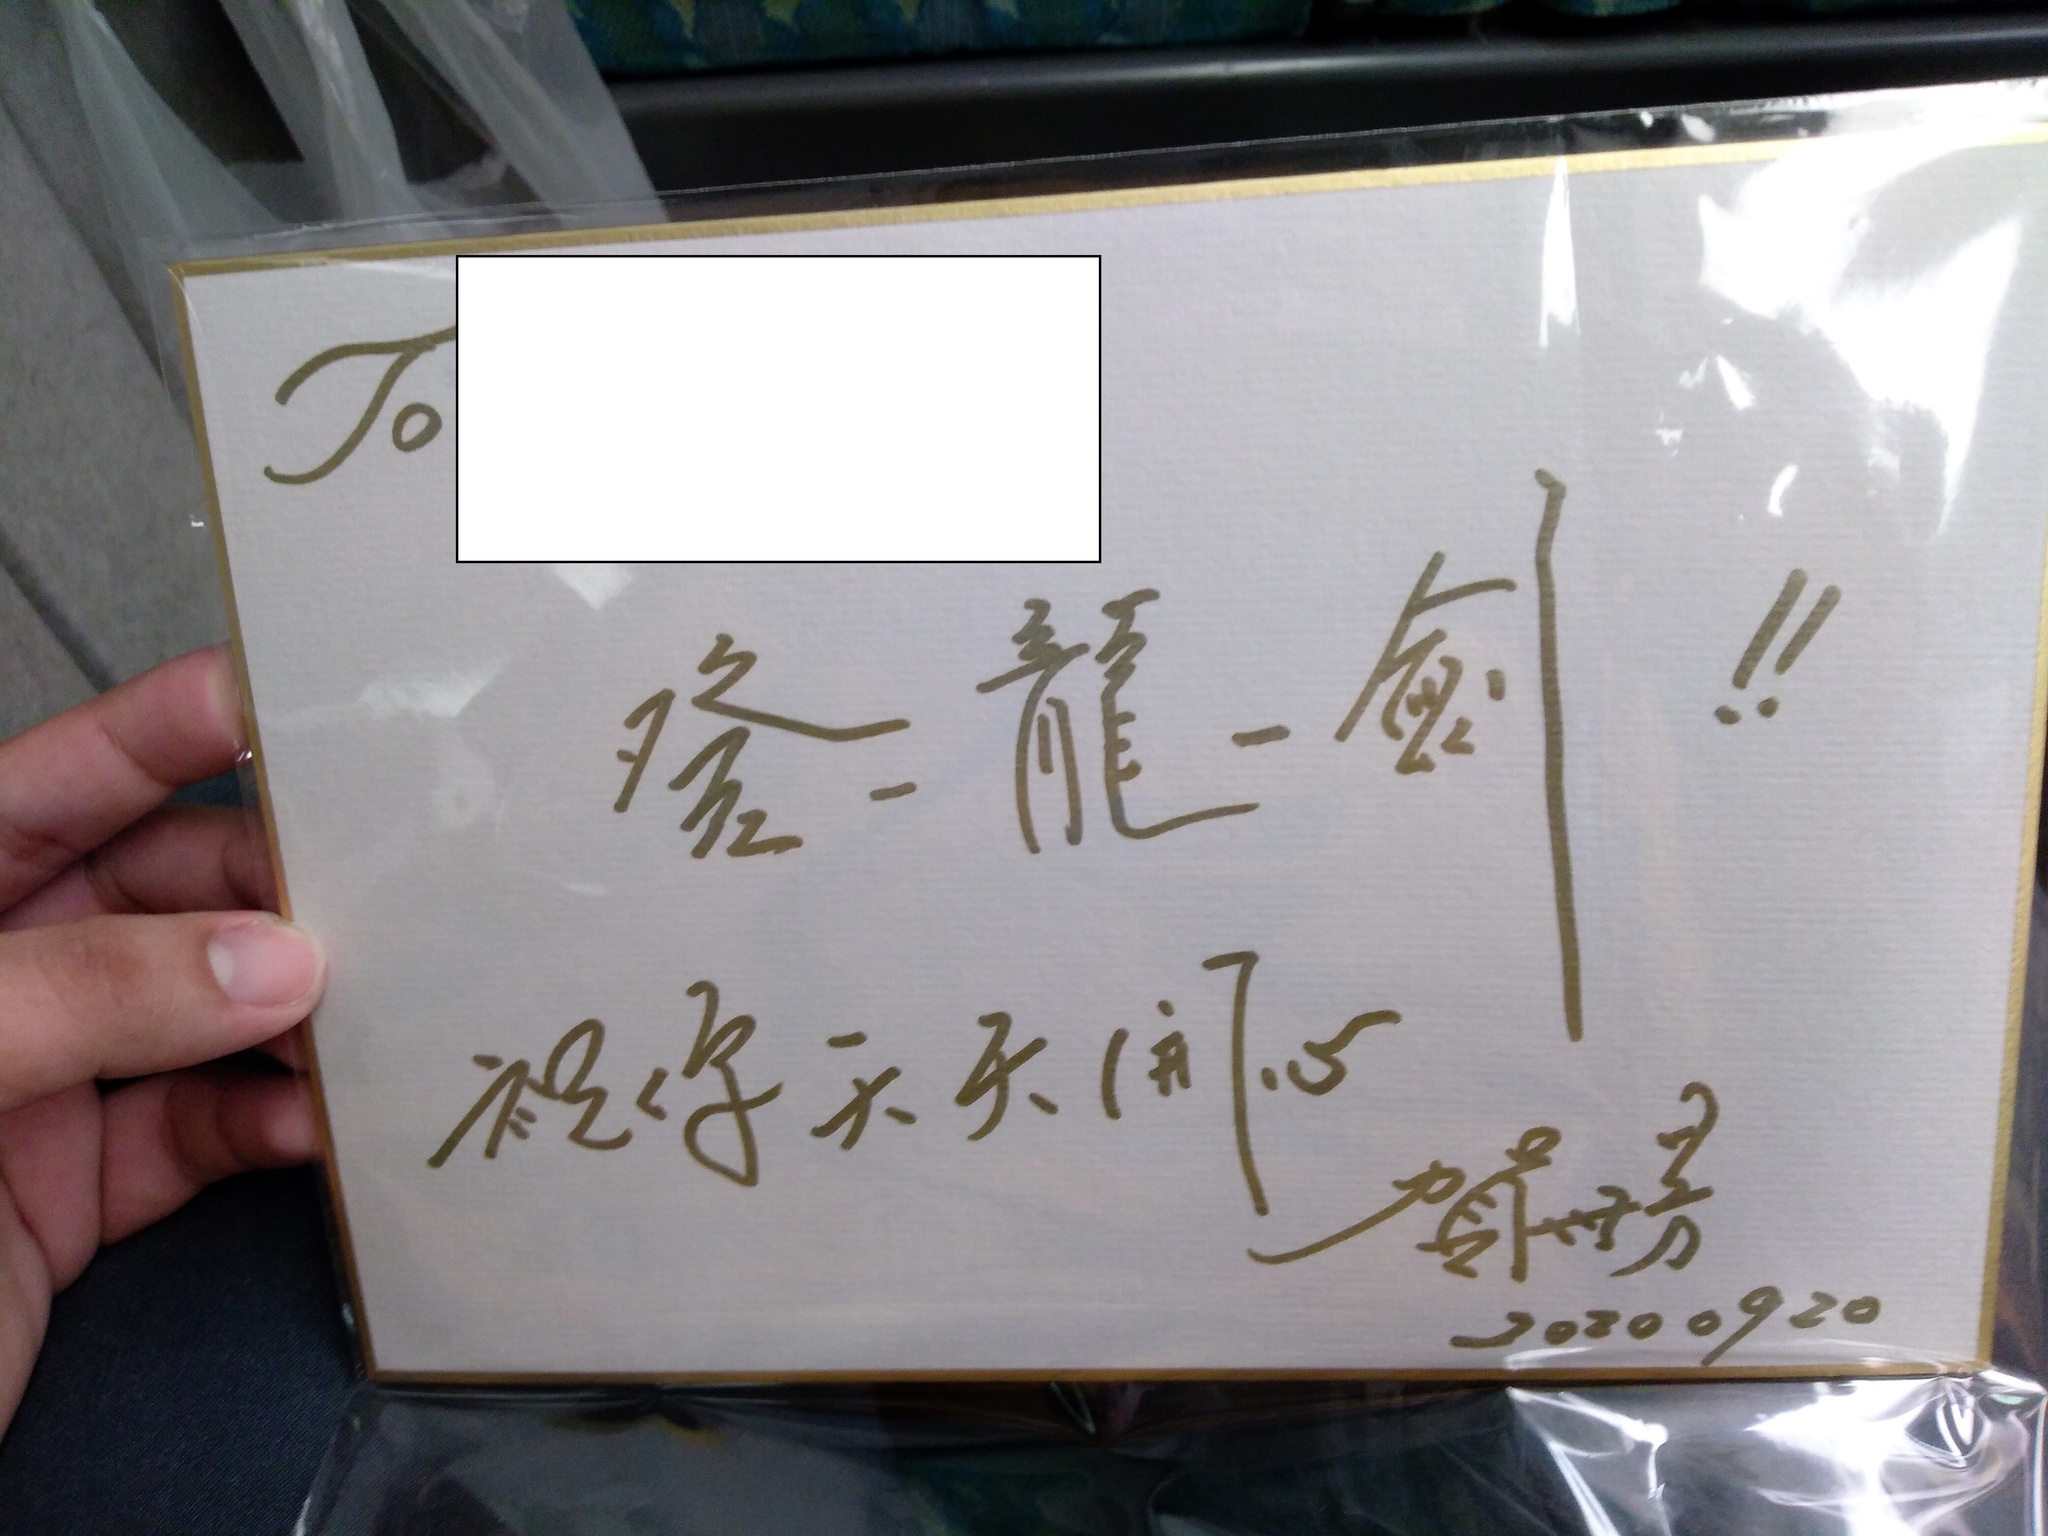 To
登-龍-劍!!
祝你天天開心
賀世芳
20200920